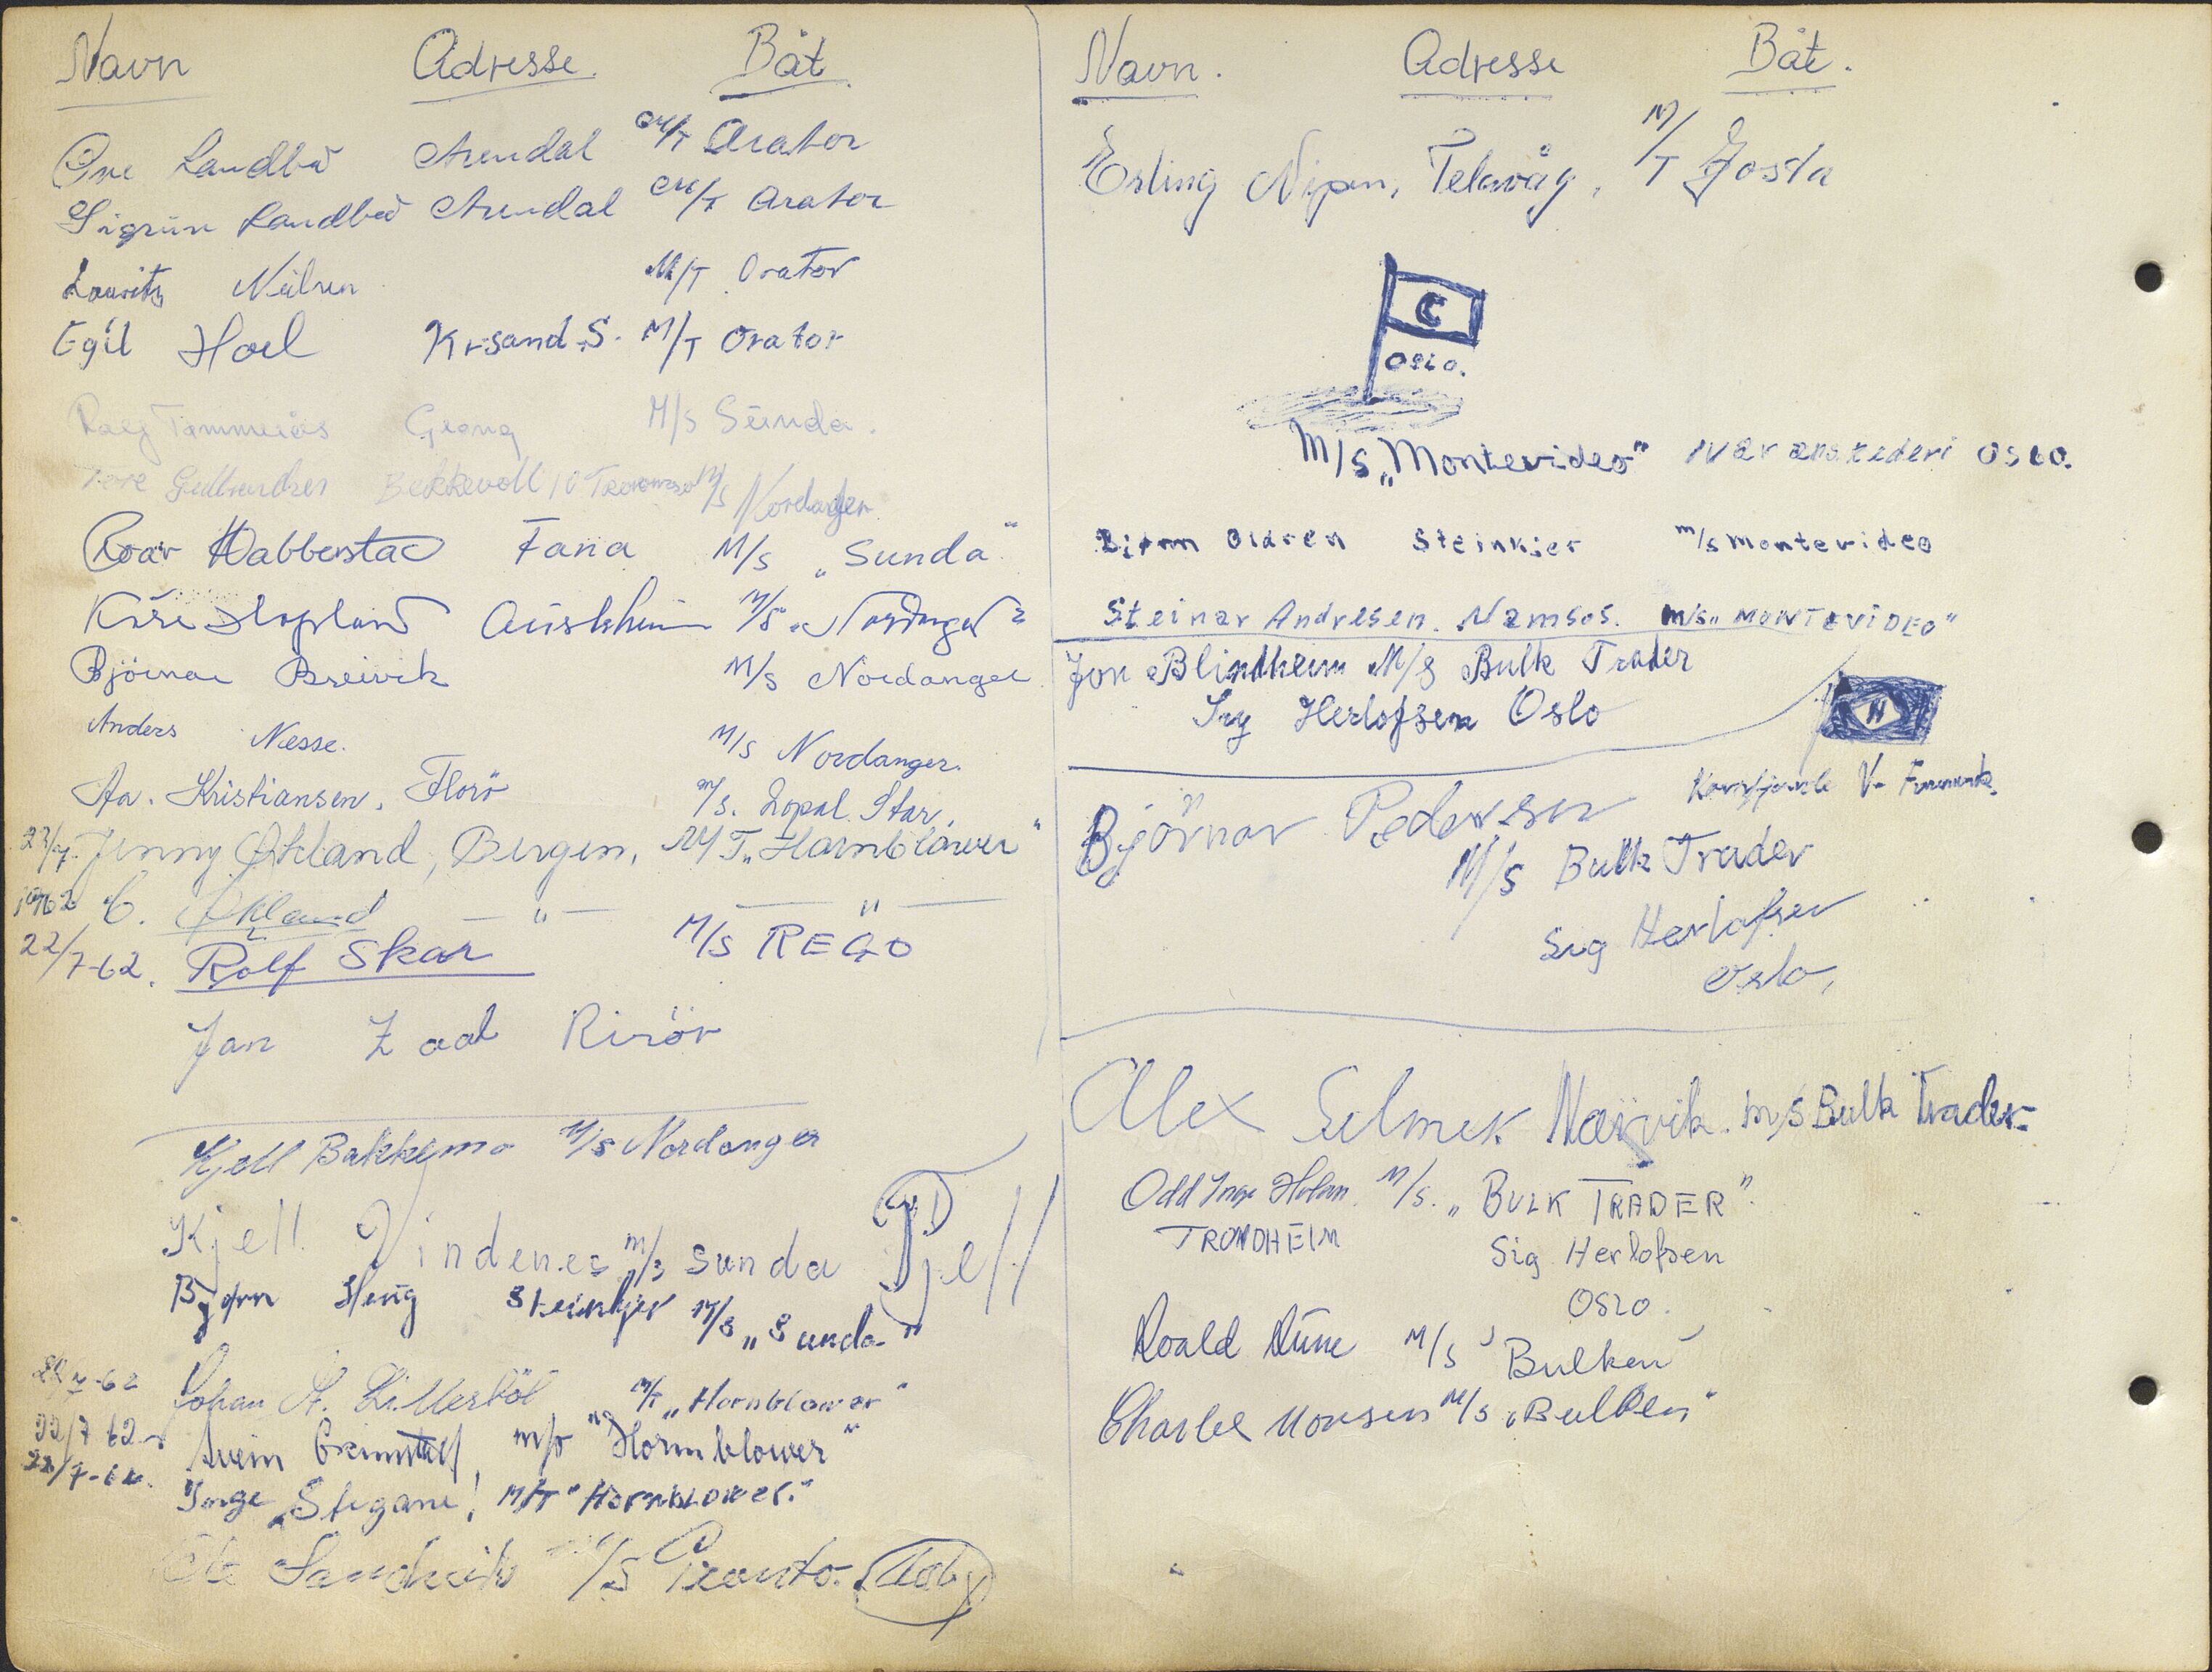 Navn Adresse Båt
Ove Landbø Arendal M/T Orator
Sigrun Landbø Arendal M/T Orator
Lauritz Nielsen M/T Orator
Egil Hoel Kr.sand.S. M/T Orator
M/S Sunda.
Tore Gulbrandsen Bekkevoll 10 M/S Nordanger
Roar Habbestad Fana M/S "Sunda"
Kåre Hopland Austrheim M/S. "Nordanger"
Bjørnar Breivik M/S Nordanger
Anders Nesse. M/S Nordanger.
Aa. Kristiansen, Florö M/S. Star.
22/7. Jenny Økland, Bergen, M/T "Hornblower"
1962 C. Økland — " — — " —
22/7-62. Rolf Skar M/S REGO
Jan Risör
Kjell Bakkemo M/S Nordanger
Kjell Vindenes M/S Sunda
Bjørn Steinkjer M/S "Sunda"
22/7-62 Johan A. M/T "Hornblower"
22/7 62 Svein "Hornblower"
22/7-62. Inge Stigane! M/T "Hornblower."
Sandvik M/S Pronto.
Navn. Adresse Båt.
Erling Nipen, Telavåg, M/T Josta
C
OSLO.
M/S "Montevideo" Ivarans Rederi OSLO.
Bjørn Oldren Steinkjer m/s Montevideo
Steinar Andresen. Namsos. M/S "MONTEVIDEO"
Jon Blindheim M/S Bulk Trader
Sig Herlofsen Oslo
H
Björnar Pedersen
M/S Bulk Trader
Sig Herlofsen
Oslo,
Alex Selmek Narvik. M/S Bulk Trader
Odd Inge Holm. M/S. "BULK TRADER".
TRONDHEIM
Sig Herlofsen
OSLO.
Roald Rune M/S "Bulken"
Charles Monsen M/S "Bulken"